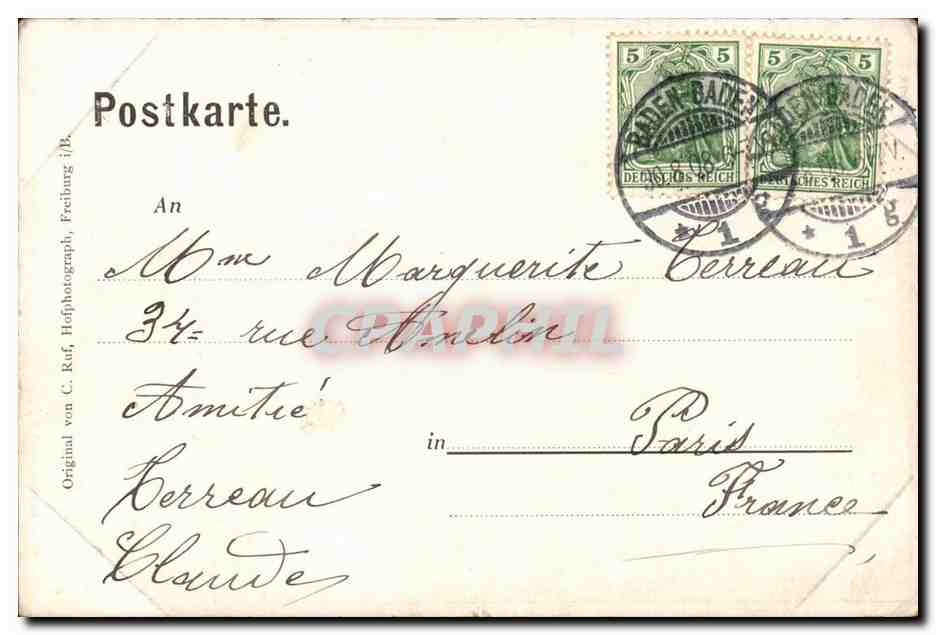 5 5
DEUTSCHES REICH DEUTSCHES REICH
BADEN-BADEN BADEN-BADEN
.8.08.
* 1 g * 1 g
Postkarte.
An
Mme Marguerite Terreau
34 rue Amelin
CPAPHIL
Amitié
in Paris
Terreau
France
Claude
Original von C. Ruf, Hofphotograph, Freiburg i/B.